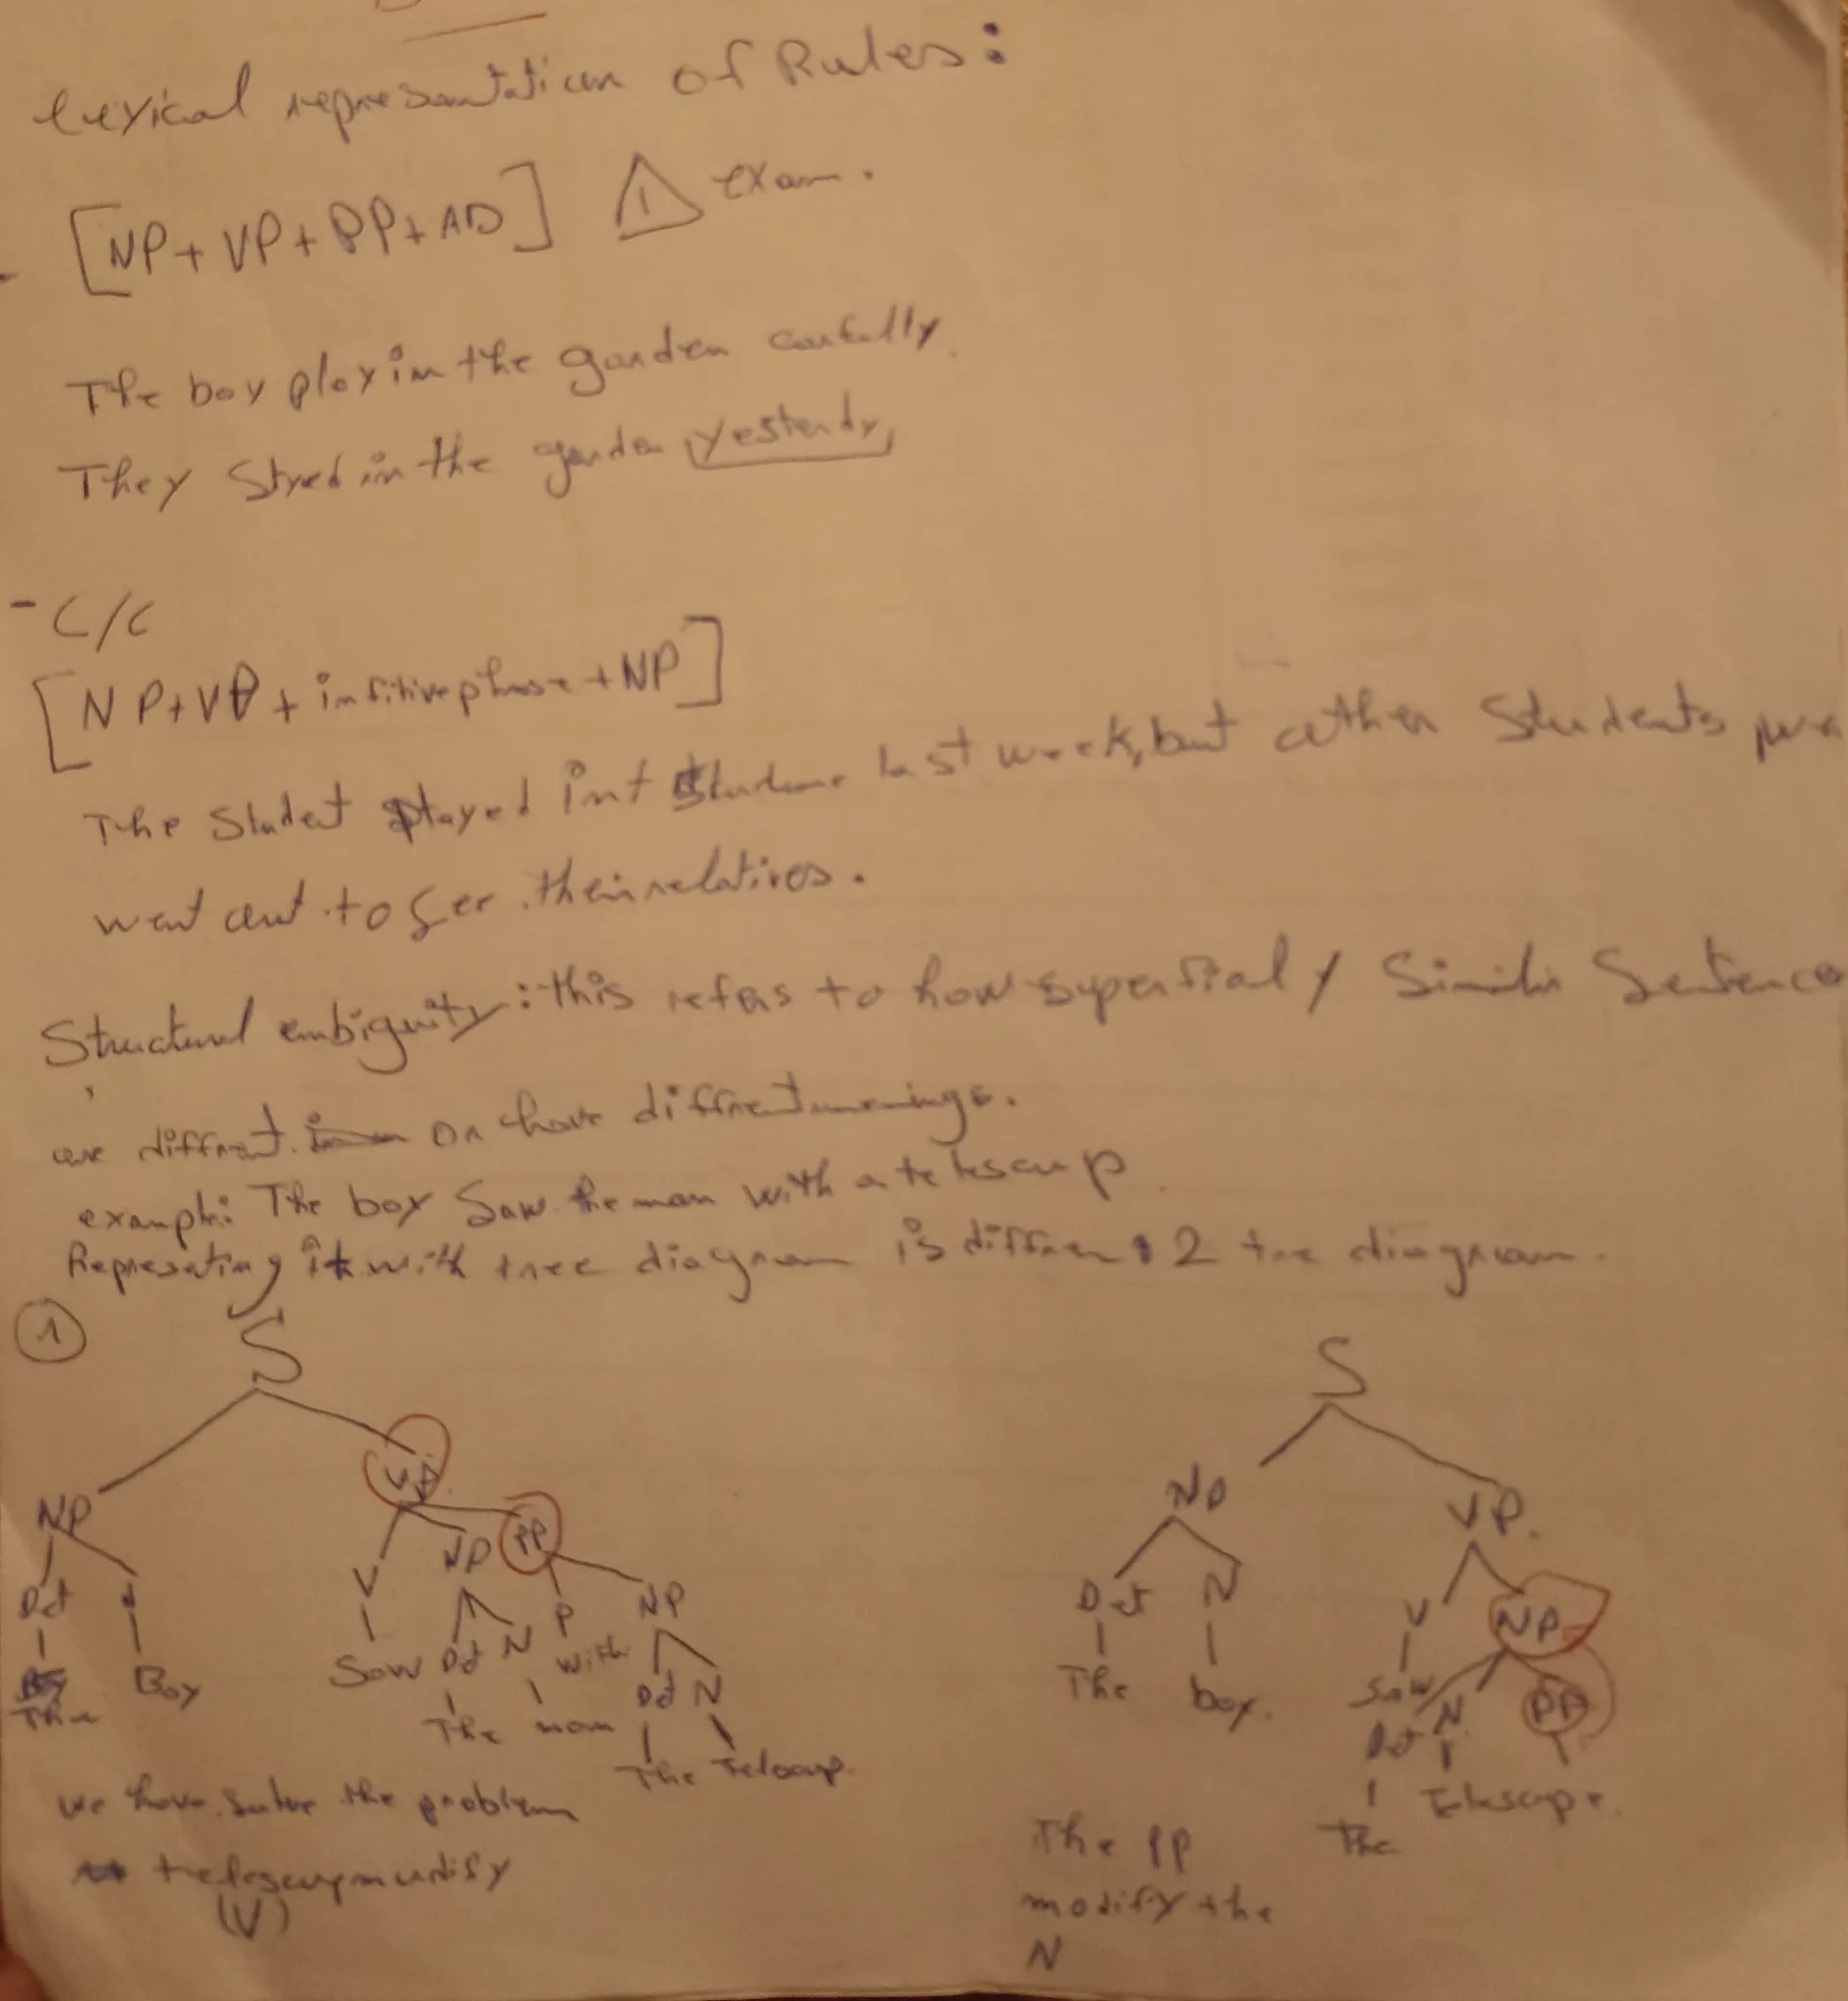 lexical representation of Rules:
[NP + VP + PP + AD] ! exam.
The boy play in the garden carfully.
They Styed in the garden yesterdy
- C/C
[NP + VP + infitive phrase + NP]
The Studet Stayed int last week, but other Students
went out to see their relatives.
Structural ambiguity: this refers to how superficialy Similar Sentence
are diffrent or have diffrent meanings.
example: The boy Saw the man with a telescup.
Represating it with tree diagram is diffren 2 tree diagram.
1
S
S
NP VP
NP VP.
Det N V NP PP
Det N V NP
The Boy Saw Det N P NP
The boy. Saw Det N PP
The man with Det N
The Telescope.
The Telocup.
we have solve the problem
telescup modify
(V)
The PP
modify the
N